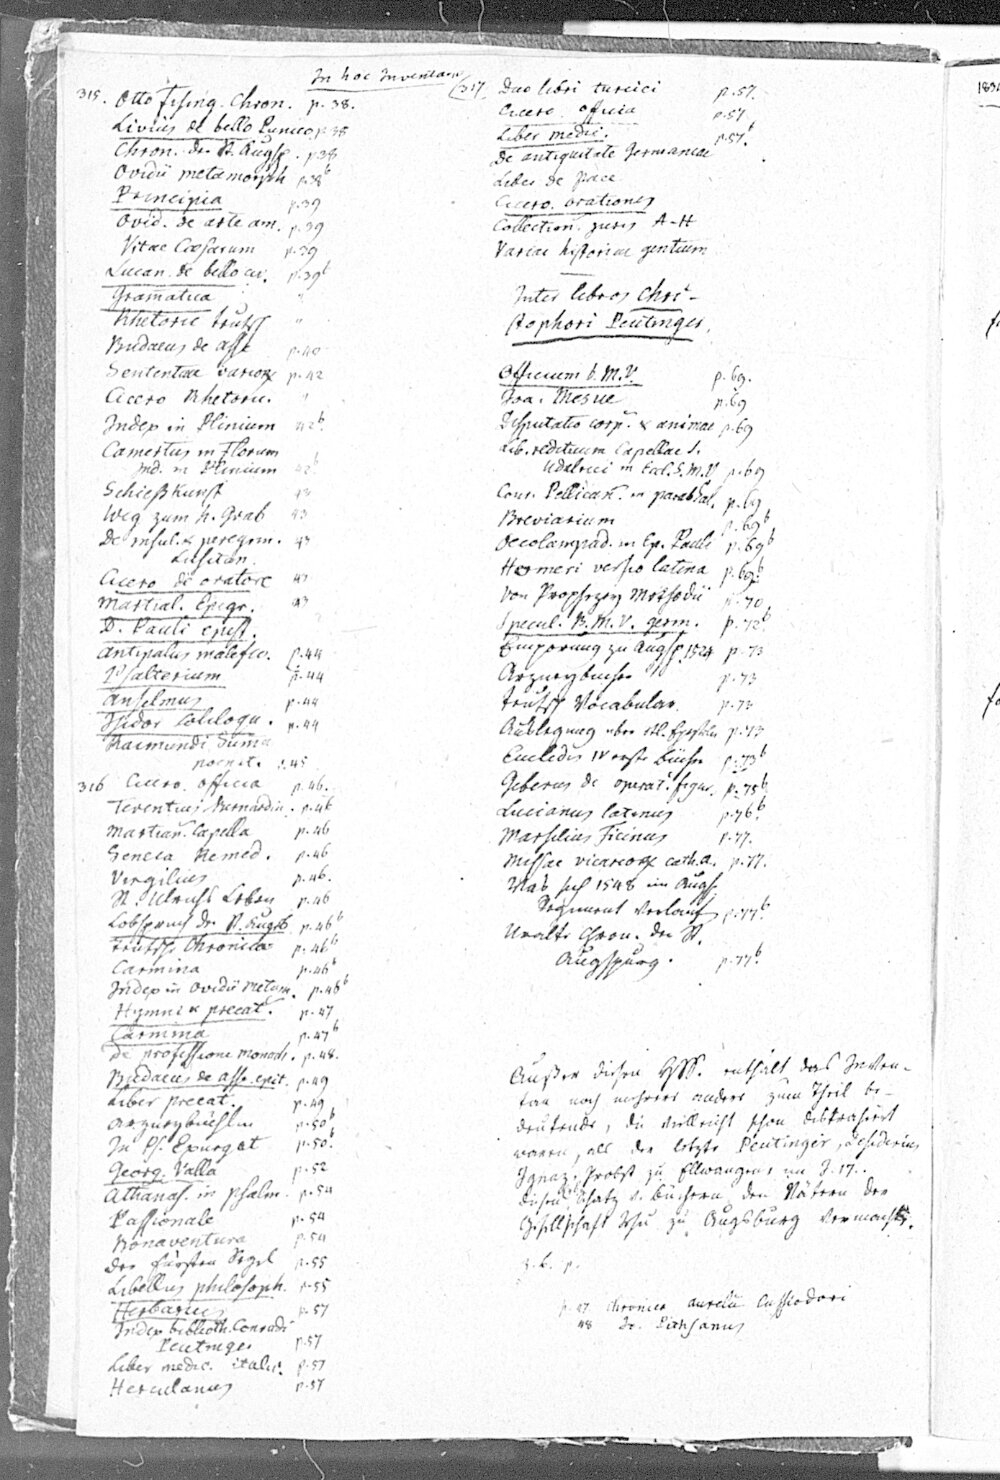 In hoc Inventario
315. Otto Frising. Chron. p. 38.
Livius de bello Punico p 38
Chron. der St. Augsp. p 38
Ovidii metamorph p. 38b
Principia p. 39
Ovid. de arte am. p. 39
Vitae Caesarum p. 39
Lucan. de bello civ. p. 39b
Gramatica "
Rhetoric teutsch "
Budaeus de asse p. 40
Sententiae varior p. 42
Cicero Rhetoric. "
Index in Plinium 42b.
Camertus in Florum
Ind. in Plinium 42b
Schießkunst 43
Weg zum h. Grab 43
De insul. & peregrin. 43
Lusitan.
Cicero de oratore 43
Martial. Epigr. 43
D. Pauli epist. "
Antipalus malefic. p. 44
Psalterium p. 44
Anselmus p. 44
Isidor soliloqu. p. 44
Raimundi Suma
poenit. p. 45
316 Cicero officia p. 46.
Terentius Bernardin. p. 46
Martian. Capella p. 46
Seneca Remed. p. 46
Virgilius p. 46.
St. Ulrichs Leben p. 46
Lobspruch der St. Augsb p. 46b
teutsche Chronica p. 46b
Carmina p. 46b
Index in Ovidii Metam. p. 46b
Hymni & precat. p. 47
Carmina p. 47b
De professione monach. p. 48.
Budaeus de asse epit. p. 49
Liber precat. p. 49
Arzneybüchlin p. 50b
In Ps. Exurgat p. 50b.
Georg. Valla p. 52
Athanas. in psalm. p. 54
Passionale p. 54
Bonaventura p. 54
Der fürsten Regel p. 55
Libellus philosoph. p. 55
Herbarius p. 57
Index biblioth. Conradi
Peutinger p. 57
Liber medic. italic. p. 57
Herculanus p. 57
317. Duo libri turcici p. 57.
Cicero officia p. 57
Liber medic. p. 57b
De antiquitate Germaniae
Liber de pace
Cicero. orationes
Collection. juris A-H
Variae historiae gentium
Inter libros Chri-
stophori Peutinger.
Officium b. M. V. p. 69.
Joa. Mesue p. 69
Disputatio corp. & animae p. 69
Lib. redituum Capellae S.
Udalrici in Eccl. S. M. V p. 69
Conr. Pellican. in parabol. p. 69
Breviarium p. 69b
Oecolampad. in Ep. Pauli p. 69b
Homeri versio latina p. 69b.
Von Prophezey Methodii p. 70
Specul. B. M. V. germ. p. 72b.
Emporung zu Augsp. 1524 p. 73
Arzneybuch p. 73
teutsch Vocabular. p. 73
Auslegung uber etl. Epistlen p. 73
Euclidis IV erste bücher p. 73b
Geberus de operat. figur. p. 75b
Lucianus latinus p. 76b.
Marsilius Ficinus p. 77.
Missae vicarior cath. A. p. 77.
Was sich 1548 im Augsp.
Regiment verlauf p. 77b.
Uralte Chron. der St.
Augspurg. p. 77b.
Außer diesen HSS. enthält das Inven-
tar noch mehrere andere zum Theil be-
deutende, die vielleicht schon distrahirt
waren, als der letzte Peutinger, Desiderius
Ignaz, Probst zu Ellwangen, im J. 17..
diesen Schatz v. büchern den Vätern der
Gesellschaft Jesu zu Augsburg vermachte.
z. b. p.
p. 47 Chronica Aurelii Cassiodori
48